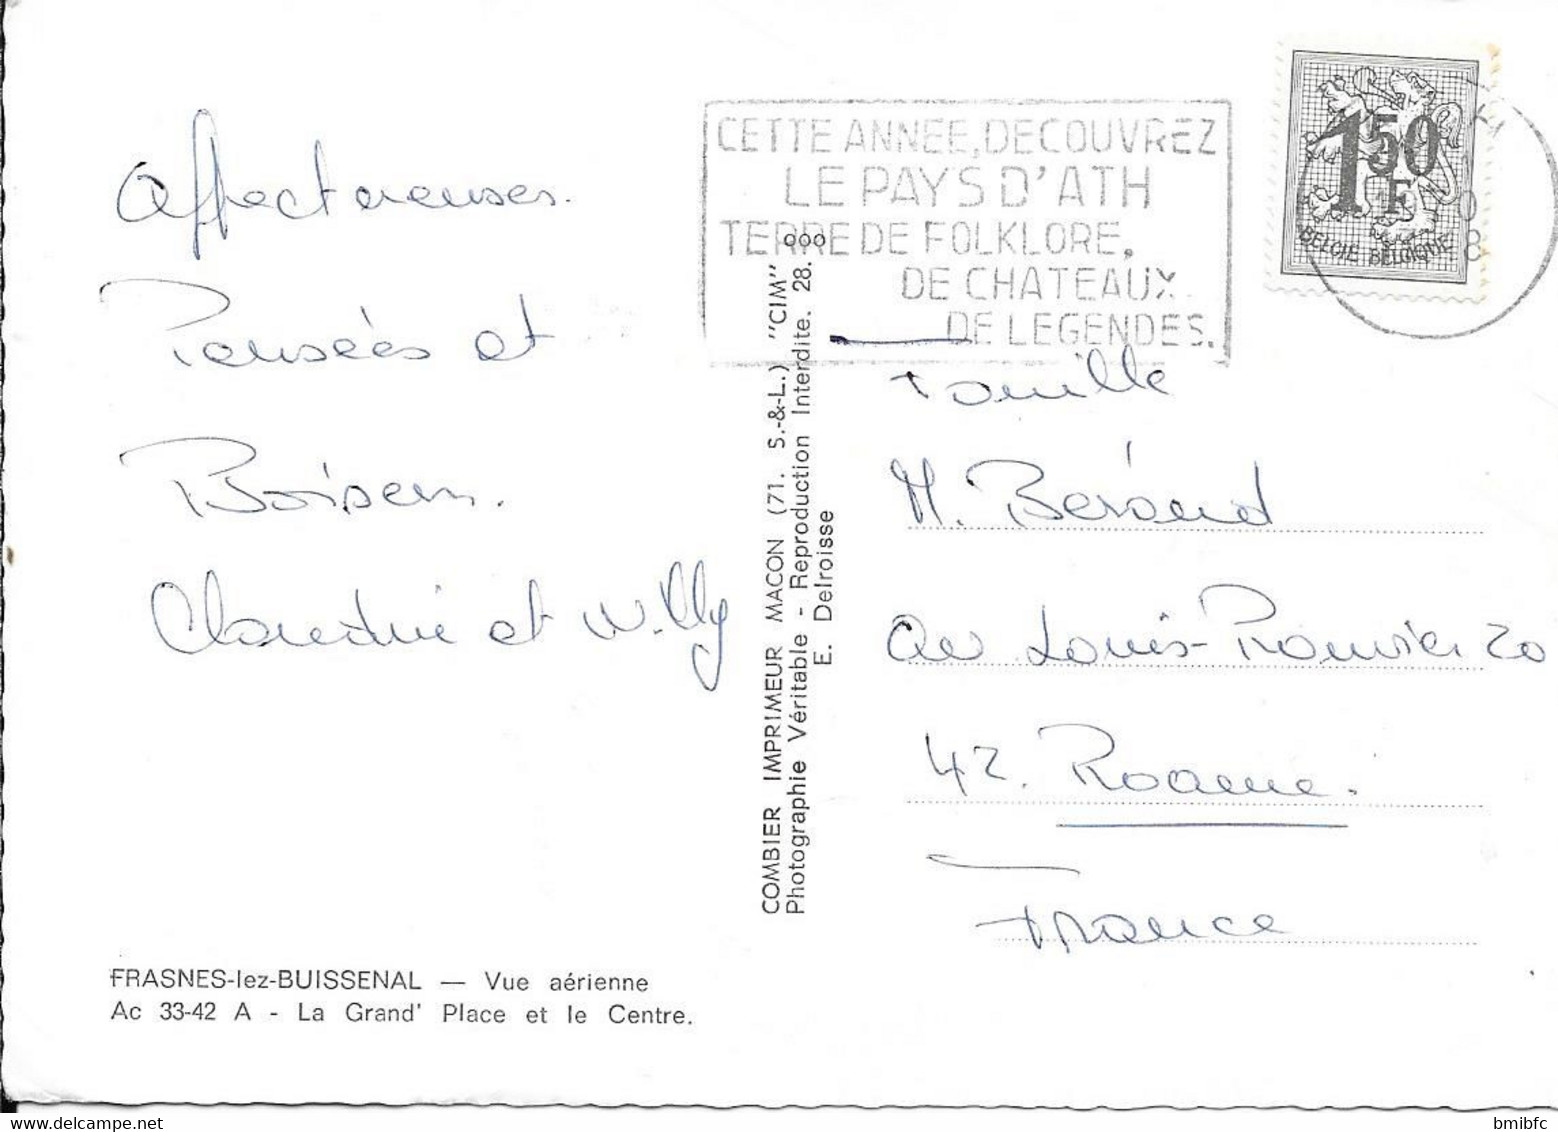 Affectueuses
Pensées et
Baisers.
Claudine et Willy
FRASNES-lez-BUISSENAL — Vue aérienne
Ac 33-42 A - La Grand' Place et le Centre.
COMBIER IMPRIMEUR MACON (71. S.-&-L.) "CIM"
Photographie Véritable - Reproduction Interdite. 28.000
E. Delroisse
CETTE ANNEE, DECOUVREZ
LE PAYS D'ATH
TERRE DE FOLKLORE,
DE CHATEAUX
DE LEGENDES.
1F50
BELGIE BELGIQUE
Famille
M. Béraud
Av Louis-Rouvier 20
42. Roanne.
France
bmibfc